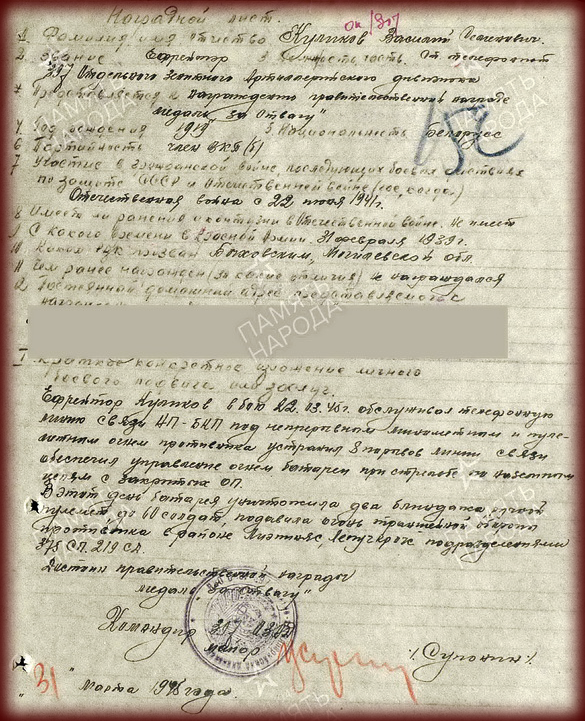 Наградной лист.
1 Фамилия имя отчество Куликов Василий
2. Звание Ефрейтор 3. Должность, часть. Ст телефонист
357 Отдельного Зенитного Артиллерийского дивизиона
Представляется к награждению правительственной награде
медаль „За Отвагу"
4. Год рождения 1919 5. Национальность белорус
6 Партийность член ВКП(б)
7 Участие в гражданской войне, последующих боевых действиях
по защите СССР и Отечественной войне (где, когда)
Отечественная война с 22 июня 1941г.
8 Имеет ли ранения и контузии в Отечественной войне. Не имеет
9 С какого времени в Красной Армии. 31 февраля 1939г.
10. Каким РВК призван Быховским, Могилевской обл.
11 Чем ранее награжден (за какие отличия) не награждался
12 Постоянный домашний адрес представляемого к
награждению
I Краткое конкретное изложение личного
боевого подвига или заслуг.
Ефрейтор Куликов в бою 22.03.45г. обслуживал телефонную
линию связи НП-БКП под непрерывным минометным и пуле-
метным огнем противника устранил 3 порыва линии связи
обеспечив управление огнем батареи при стрельбе по наземным
целям с закрытых ОП.
В этот день батарея уничтожила два блиндажа, ручной
пулемет, до 60 солдат, подавила огонь траншейной обороны
противника в районе подразделениями
375 СП. 219 СД.
Достоин правительственной награды
медаль „За отвагу"
Командир 357 ОЗАД
майор
31 " Марта 1945 года.
ПАМЯТЬ
НАРОДА